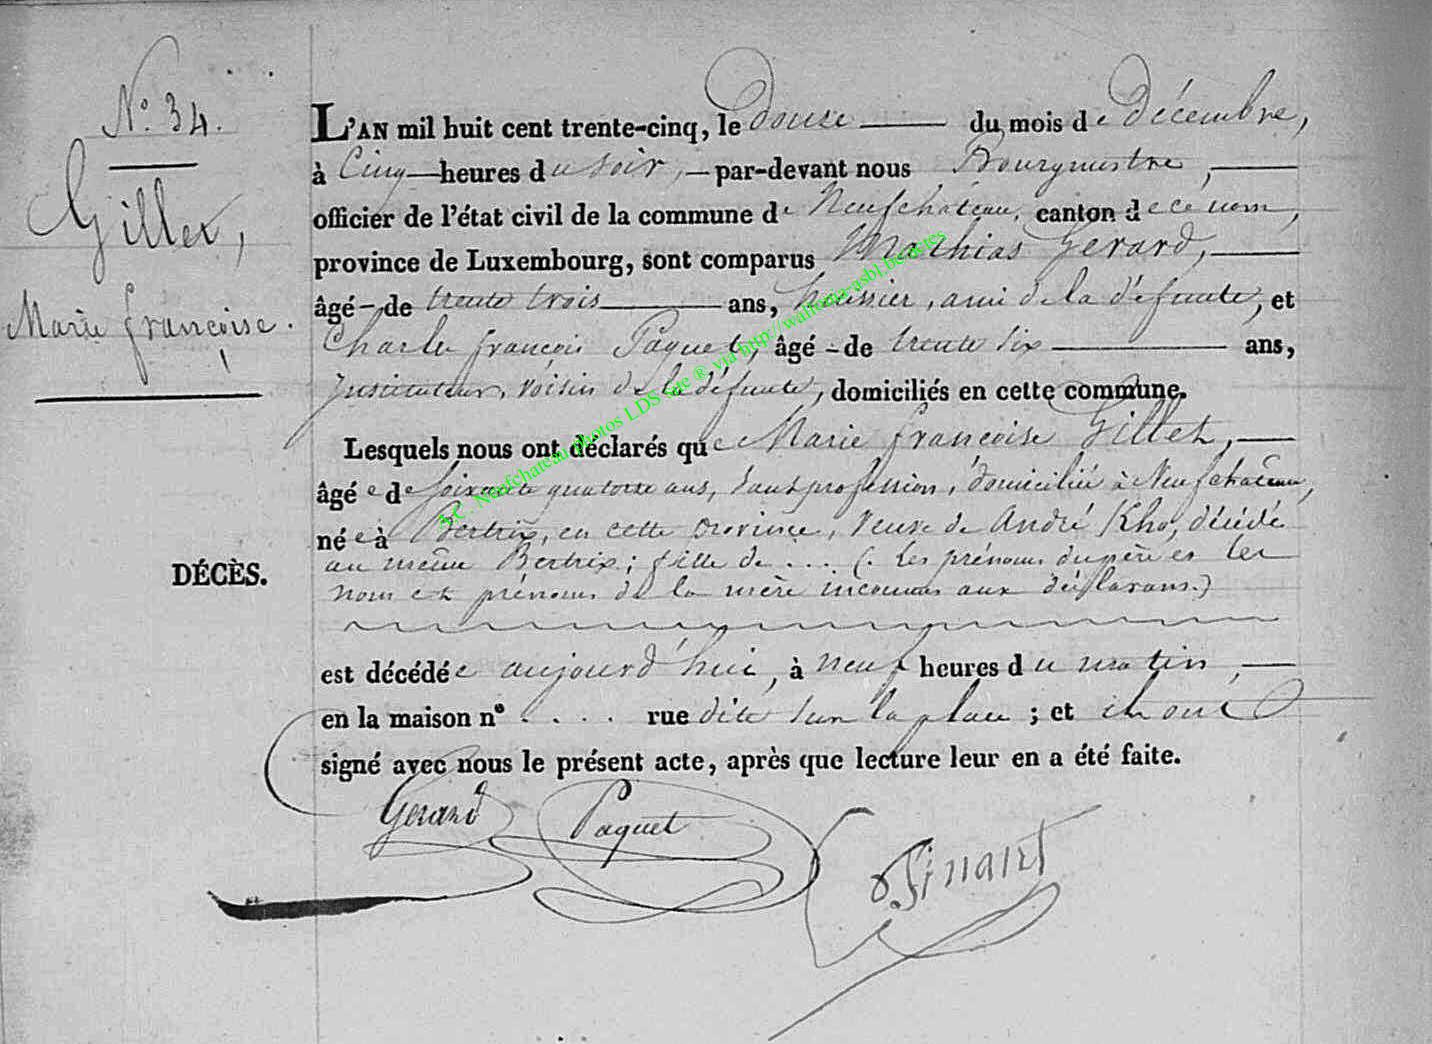 N.° 34.
Gillet,
Marie françoise.
DÉCÈS.
L'AN mil huit cent trente-cinq, le douze du mois de Décembre,
à Cinq heures du soir, par-devant nous Bourgmestre,
officier de l'état civil de la commune de Neufchâteau, canton de ce nom,
province de Luxembourg, sont comparus Mathias Gerard,
âgé de trente trois ans, huissier, ami de la défunte, et
Charles françois Paquet, âgé de trente six ans,
Instituteur, voisin de la défunte, domiciliés en cette commune.
Lesquels nous ont déclarés que Marie françoise Gillet,
âgée de soixante quatorze ans, sans profession, domiciliée à Neufchâteau,
née à Bertrix, en cette province, veuve de André Kho, décédé
au même Bertrix; fille de .... (. les prénoms du père et les
nom et prénoms de la mère inconnus aux déclarans.)
est décédée aujourd'hui, à neuf heures du matin,
en la maison n° .... rue dite sur la place ; et ils ont
signé avec nous le présent acte, après que lecture leur en a été faite.
Gerard Paquet
A.C. Neufchateau photos LDS faite ® via http://wallonia-asbl.be/actes